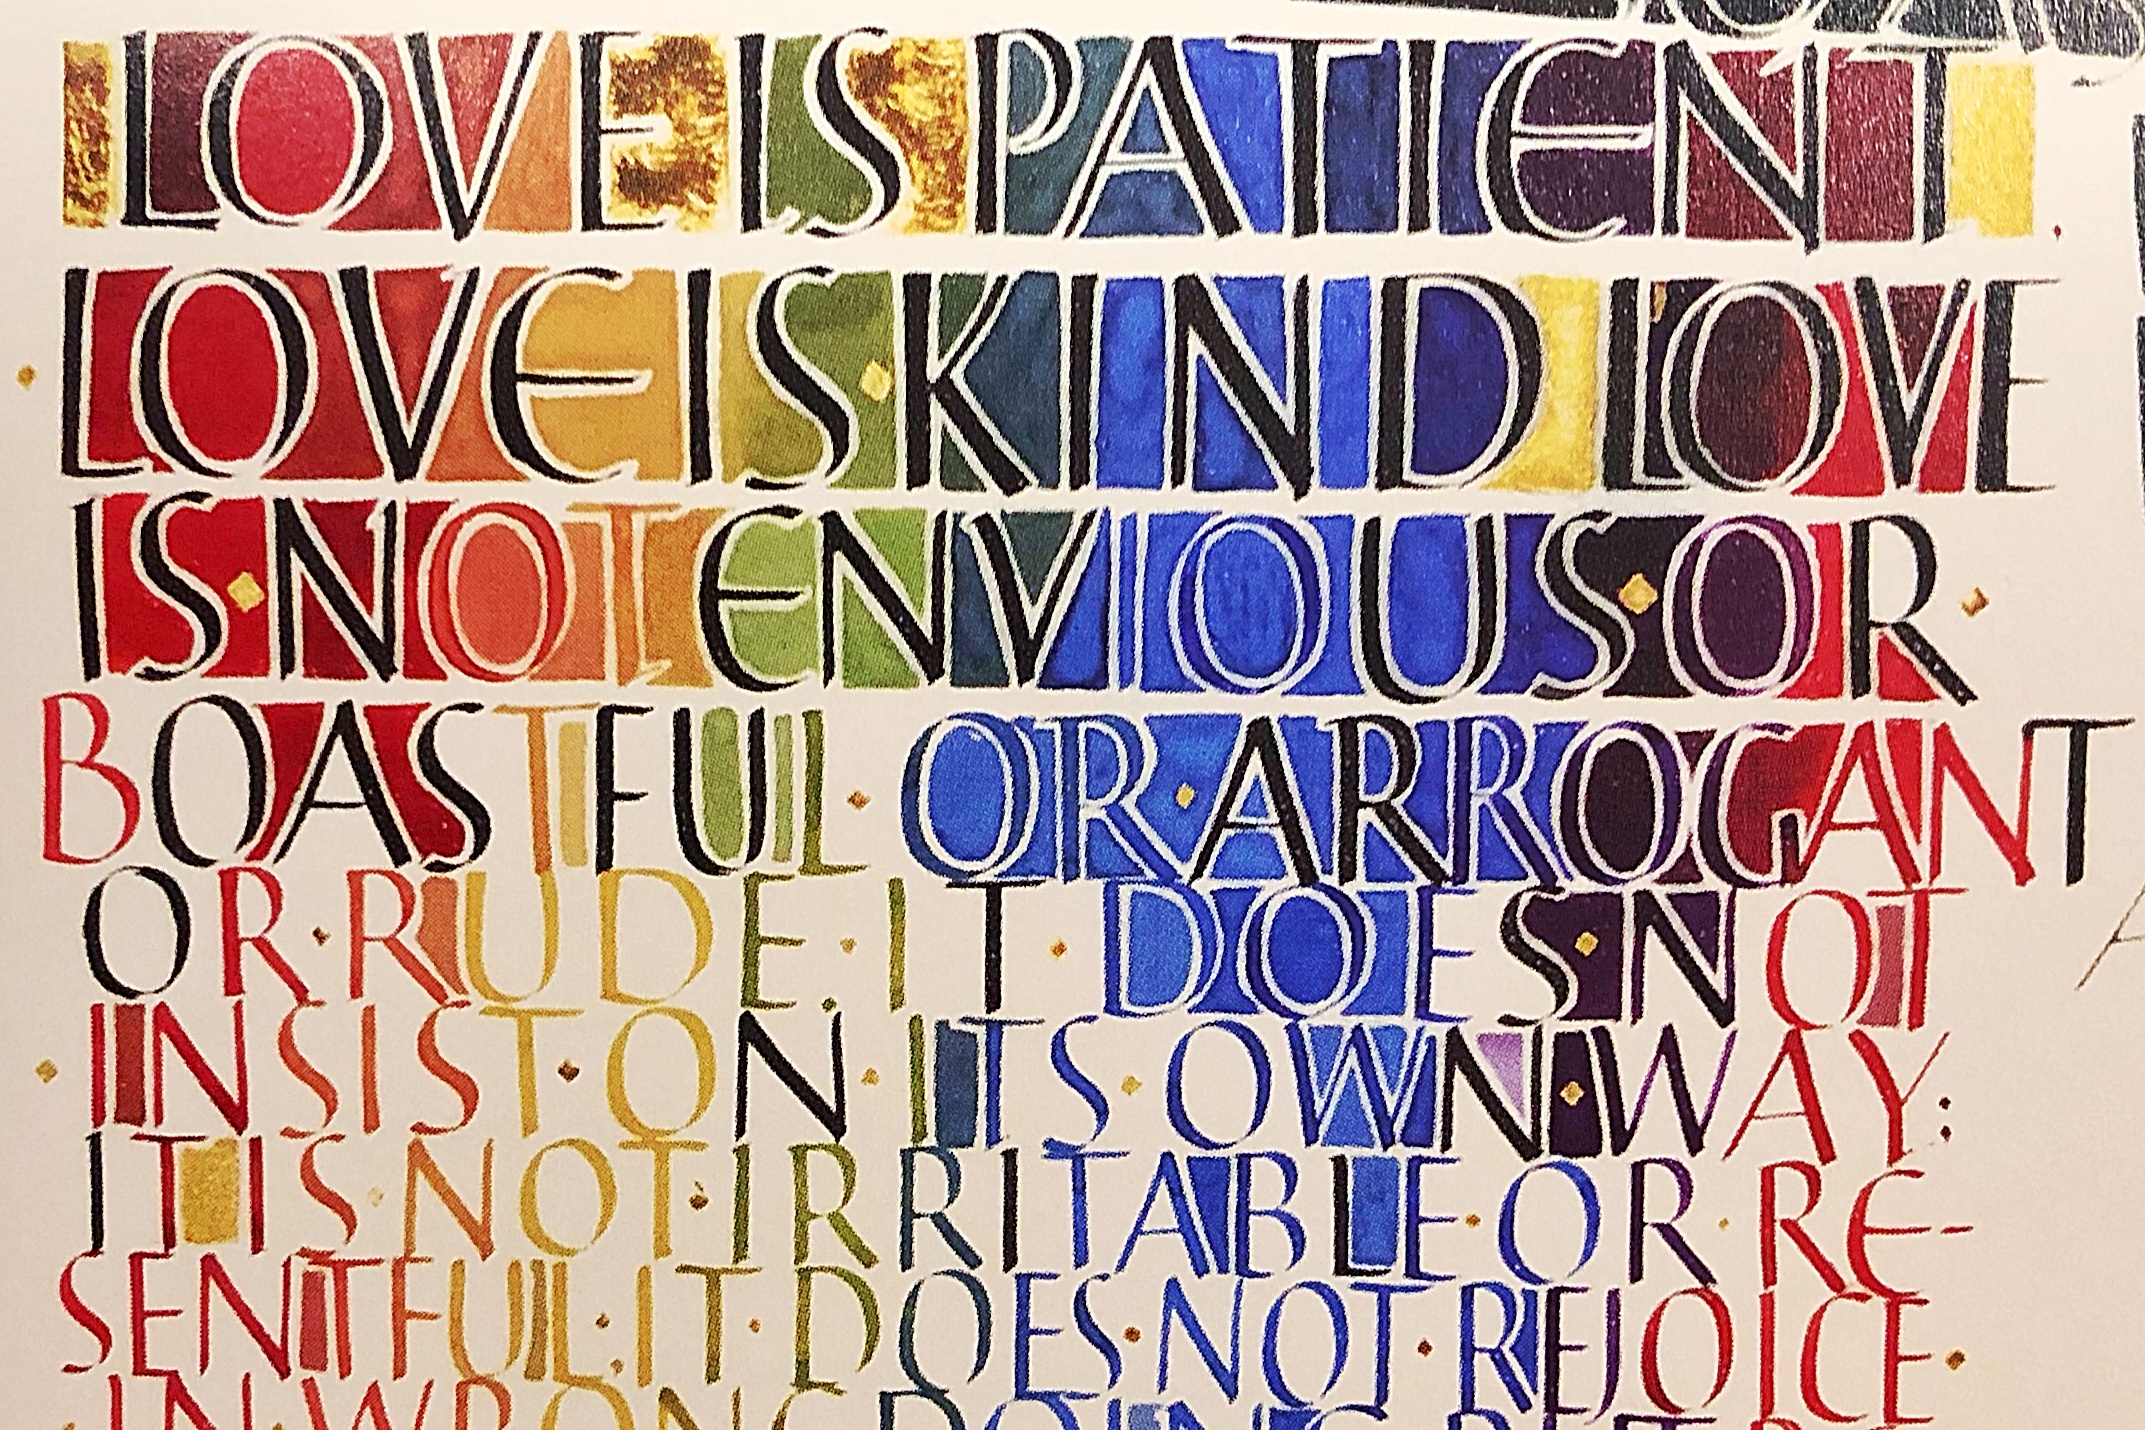 LOVE IS PATIENT.
·LOVE IS·KIND LOVE
IS·NOT ENVIOUS·OR·
BOASTFUL· OR·ARROGANT
OR·RUDE.·IT·DOES·NOT
·INSIST·ON·ITS·OWN·WAY;
IT IS·NOT·IRRITABLE·OR·RE-
SENTFUL;·IT·DOES·NOT·REJOICE·
IN·WRONGDOING, BUT RE